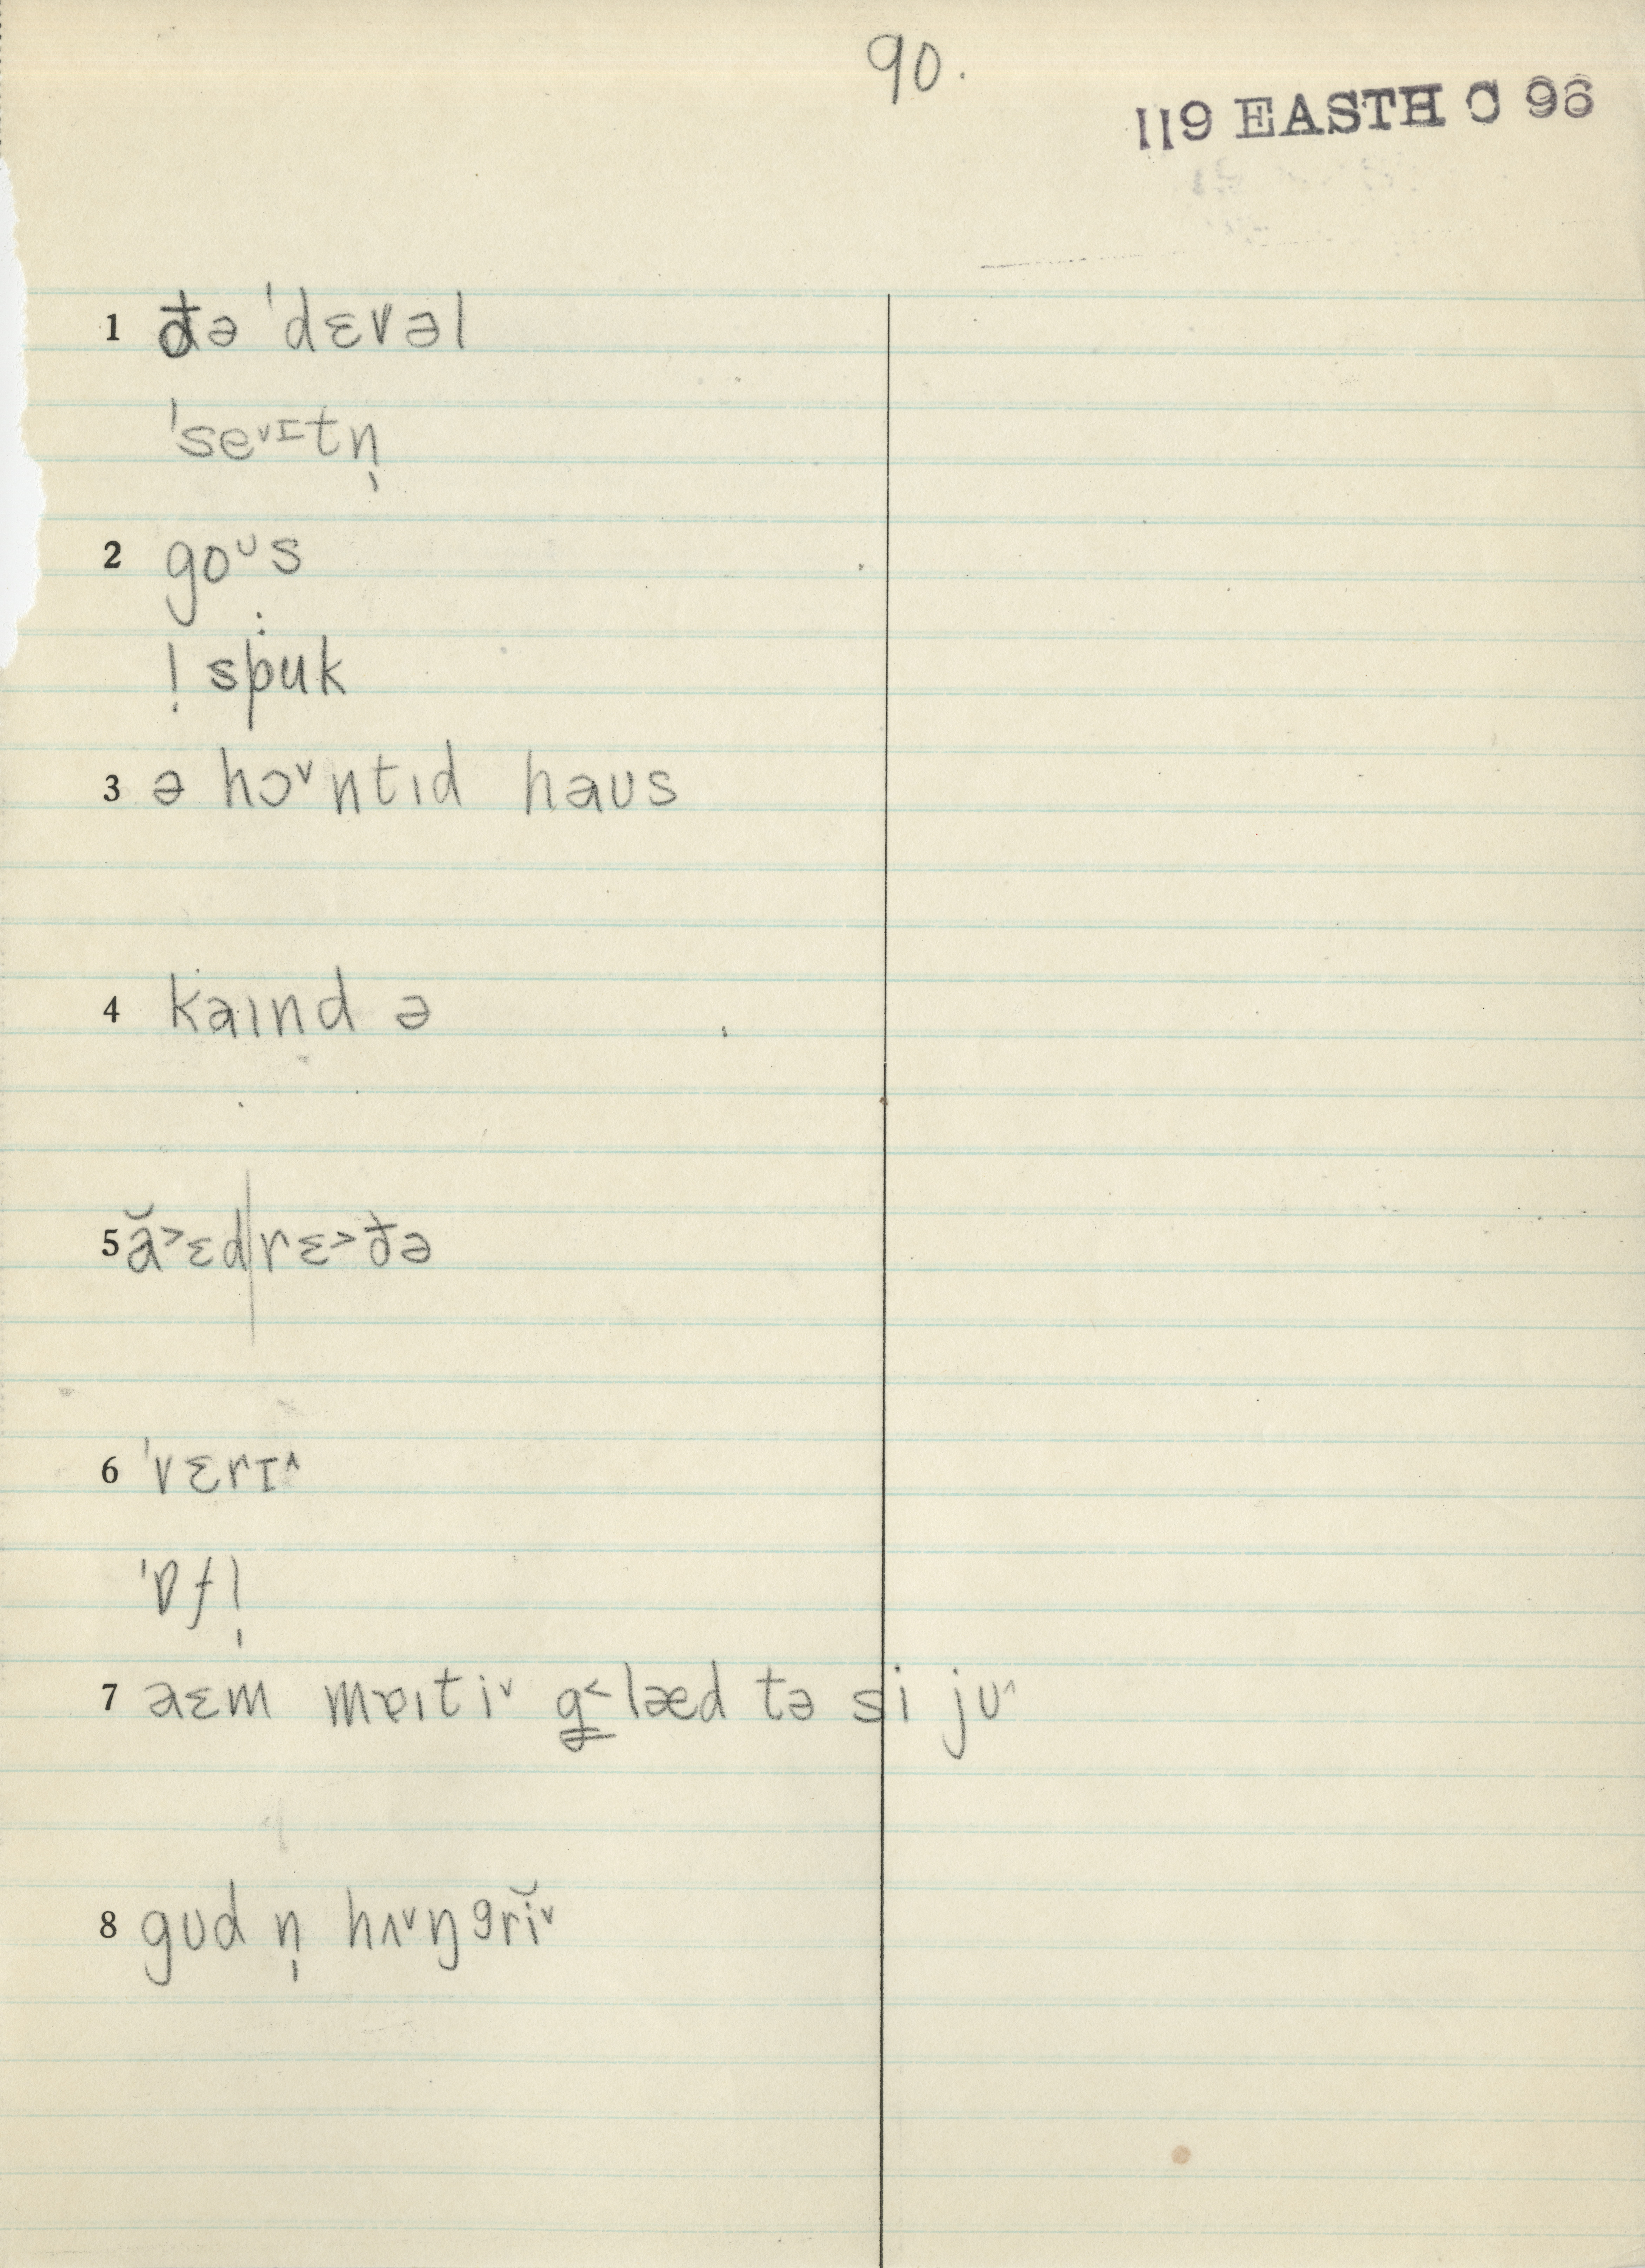 90.
119 EASTH C 96
1 đə ˈdɛvəl
ˈseᵛɪtn̩
2 goᶸs
! spuk
3 ə hɔᵛntɪd haʊs
4 kaɪnd ə
5 ă˃ɛd|rɛ˃đə
6 ˈvɛrɪ^
ˈɒfl̩
7 aɛm mɐɪtiᵛ g˂læd tə si jʊ^
8 gʊd n̩ hʌᵛŋgrĭᵛ